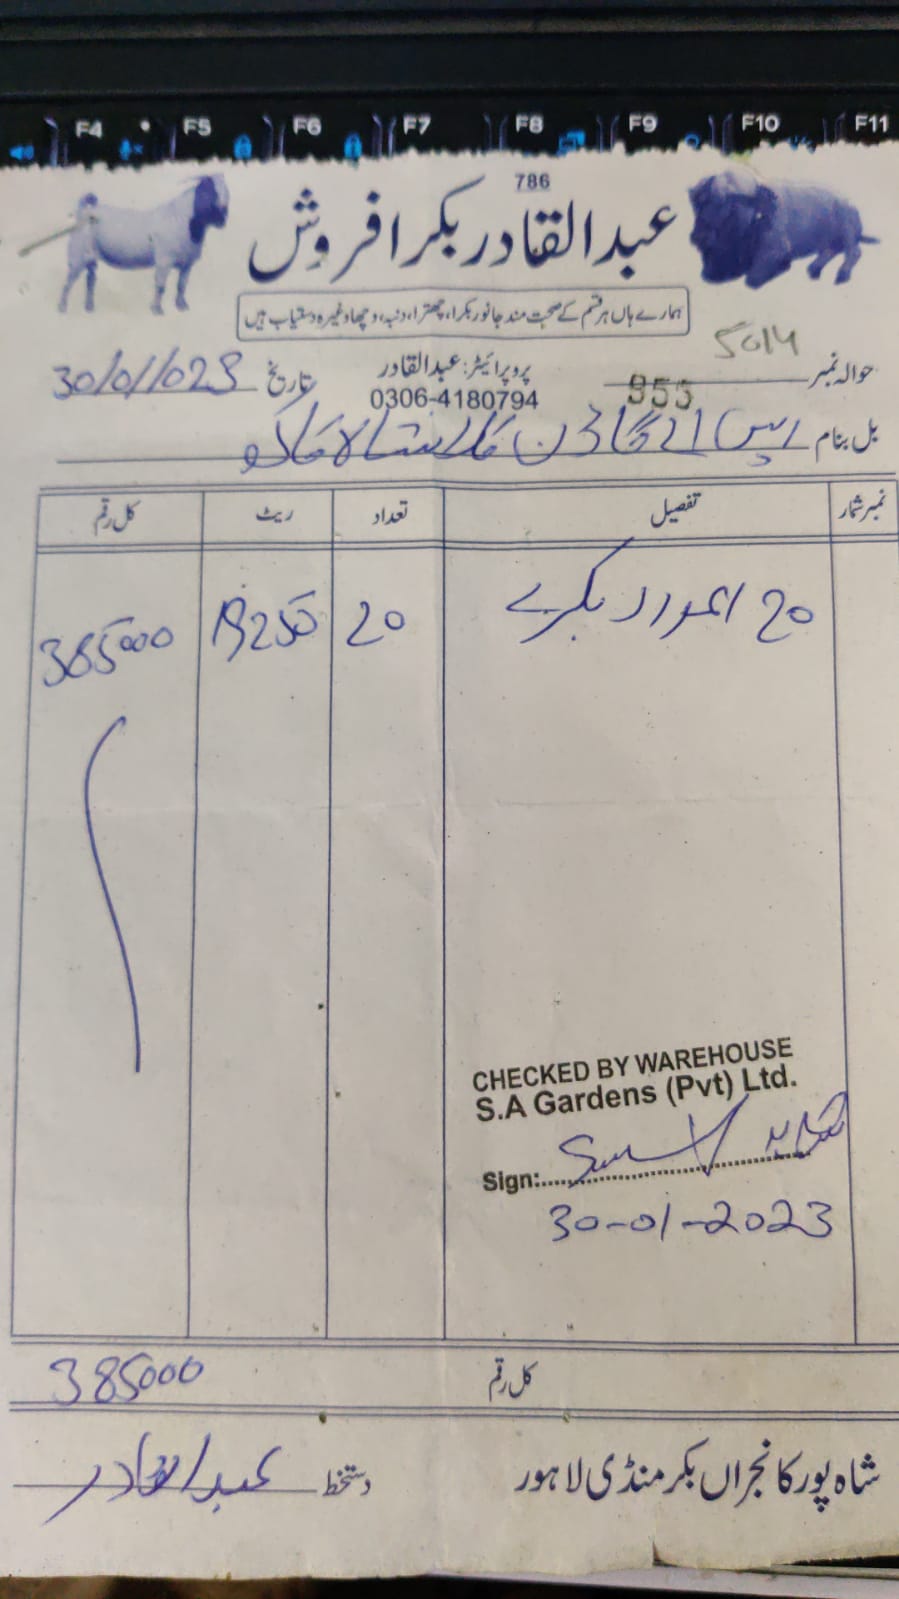 F4 F5 F6 F7 F8 F9 F10 F11
786
عبدالقادر بکرا فروش
ہمارے ہاں ہر قسم کے صحت مند جانور بکرا، چھترا، دنبہ، وچھا وغیرہ دستیاب ہیں
حوالہ نمبر 5014
955
پروپرائیٹر: عبدالقادر
0306-4180794
تاریخ 30/01/023
بل بنام ایس اے گارڈن
نمبر شمار تفصیل تعداد ریٹ کل رقم
20 عدد بکرے 20 19250 385000
CHECKED BY WAREHOUSE
S.A Gardens (Pvt) Ltd.
Sign:
30-01-2023
کل رقم 385000
شاہ پور کانجراں بکر منڈی لاہور
دستخط عبدالقادر